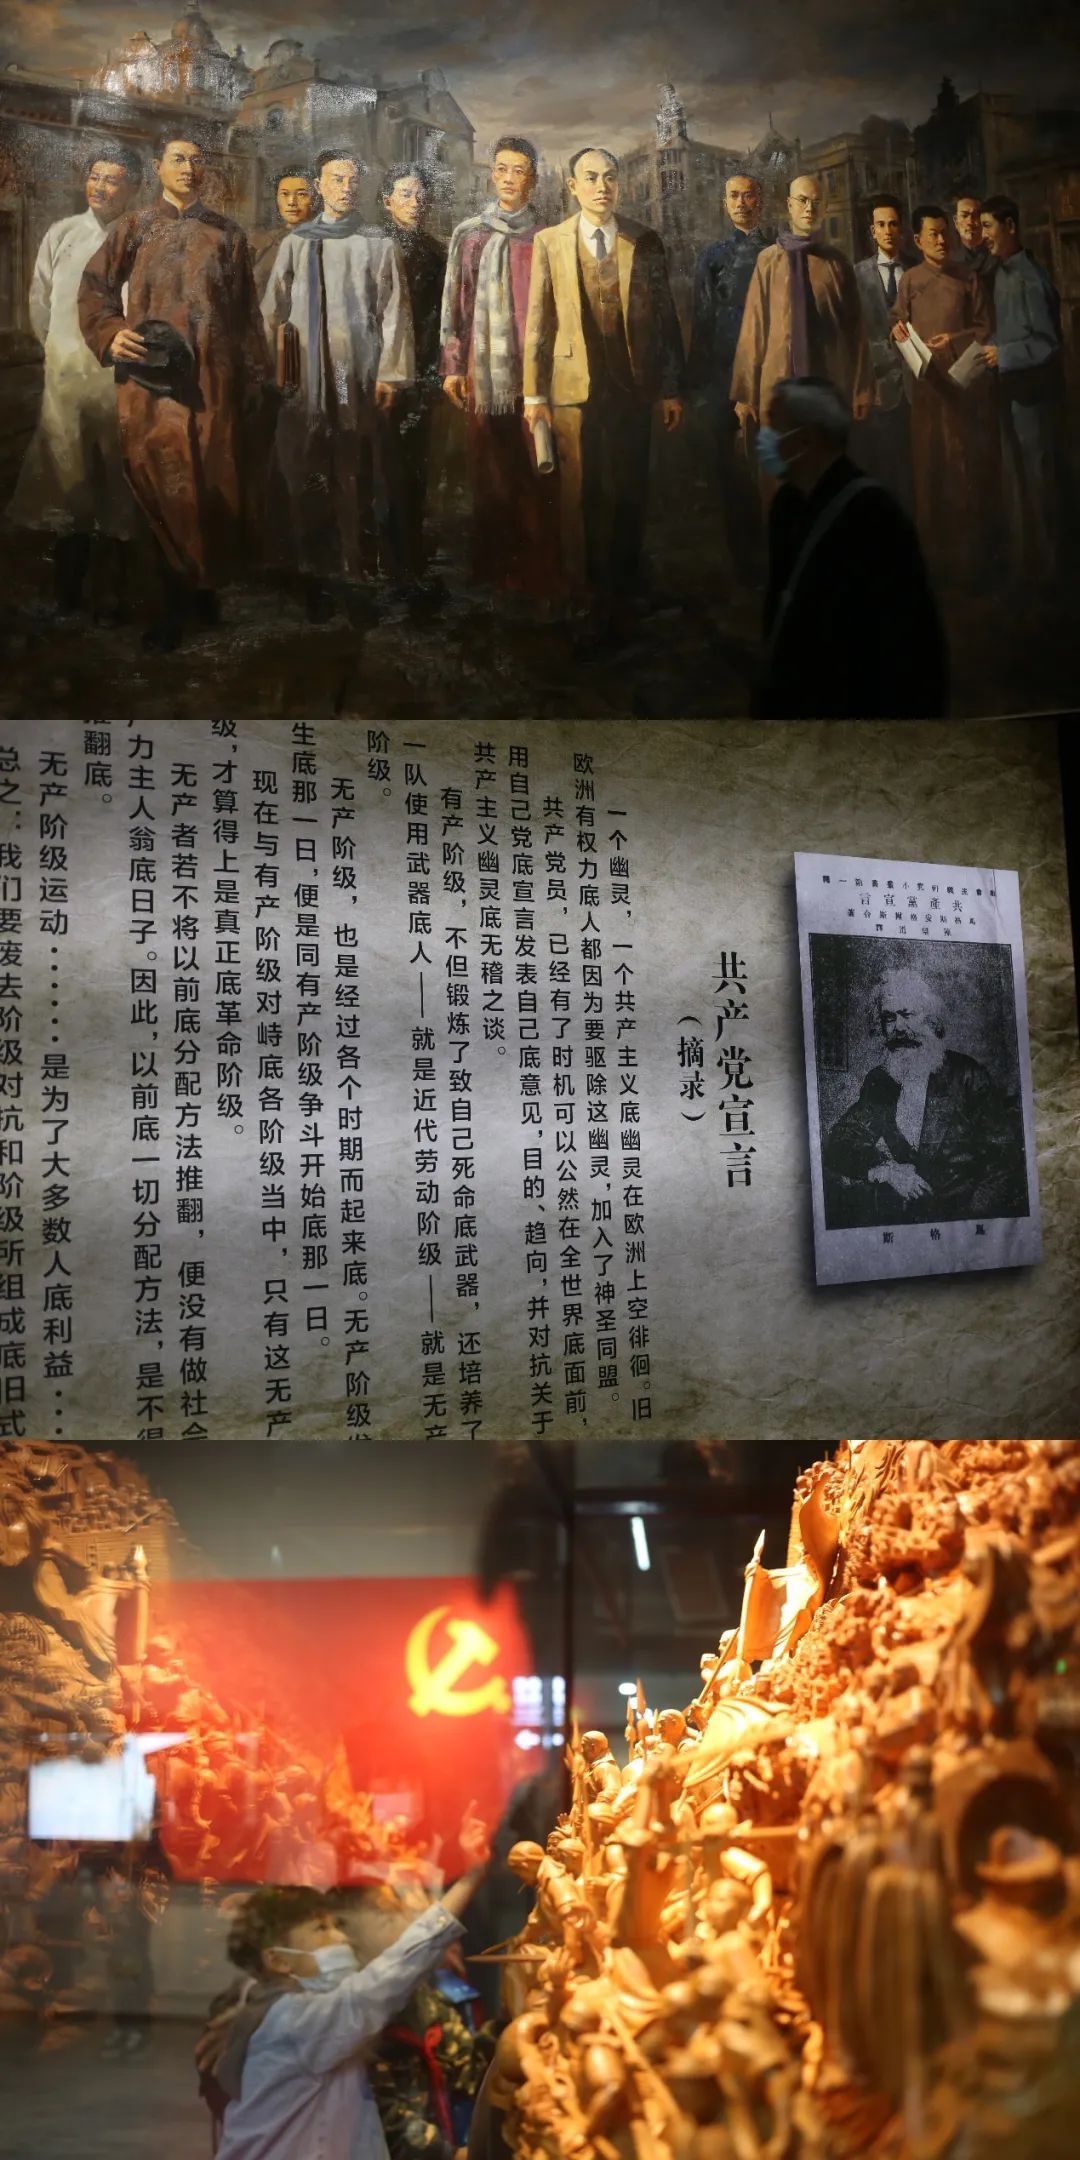 社會主義研究小叢書第一種
共產黨宣言
馬格斯安格爾斯合著
陳望道譯
馬格斯
共产党宣言
（摘录）
一个幽灵，一个共产主义底幽灵在欧洲上空徘徊。旧
欧洲有权力底人都因为要驱除这幽灵，加入了神圣同盟。
共产党员，已经有了时机可以公然在全世界底面前，
用自己党底宣言发表自己底意见，目的、趋向，并对抗关于
共产主义幽灵底无稽之谈。
有产阶级，不但锻炼了致自己死命底武器，还培养了
一队使用武器底人——就是近代劳动阶级——就是无产
阶级。
无产阶级，也是经过各个时期而起来底。无产阶级发
生底那一日，便是同有产阶级争斗开始底那一日。
现在与有产阶级对峙底各阶级当中，只有这无产
级，才算得上是真正底革命阶级。
无产者若不将以前底分配方法推翻，便没有做社会
力主人翁底日子。因此，以前底一切分配方法，是不得
推翻底。
无产阶级运动······是为了大多数人底利益···
总之：我们要废去阶级对抗和阶级所组成底旧式